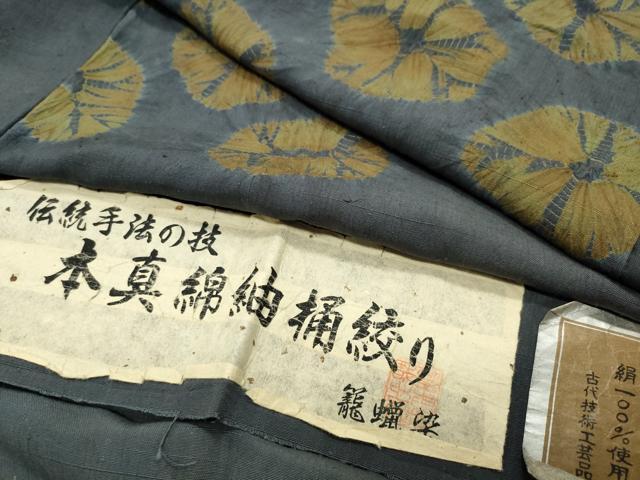 伝統手法の技
本真綿紬桶絞り
籠蝋染
絹一〇〇%使用
古代技術工芸品